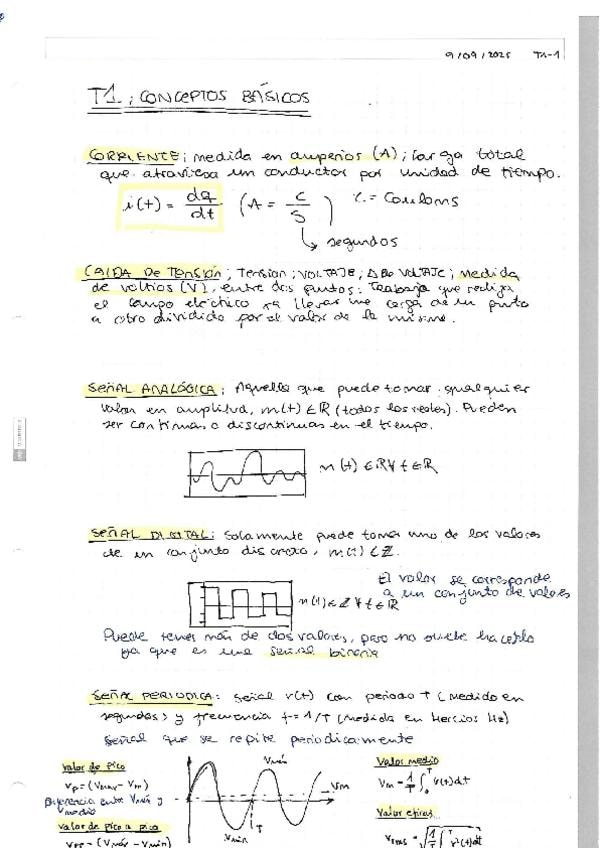 9/09/2025 T1-1
T1: CONCEPTOS BÁSICOS
CORRIENTE: medida en amperios (A); carga total
que atraviesa un conductor por unidad de tiempo.
i(t) = dq/dt (A = C/S) C = Couloms
↳ segundos
CAIDA DE TENSIÓN; TENSION; VOLTAJE; Δ DE VOLTAJE; medida
de voltios (V), entre dos puntos: Trabajo que realiza
el campo eléctrico llevar una carga de un punto
a otro dividido por el valor de la misma.
SEÑAL ANALÓGICA: Aquella que puede tomar qualquier
valor en amplitud, m(t) ∈ ℝ (todos los reales). Pueden
ser continuas o discontinuas en el tiempo.
m(t) ∈ ℝ ∀ t ∈ ℝ
SEÑAL DIGITAL: Solamente puede tomar uno de los valores
de un conjunto discreto, m(t) ∈ ℤ.
El valor se corresponde
a un conjunto de valores
m(t) ∈ ℤ ∀ t ∈ ℝ
Puede tener más de dos valores, pero no suele hacerlo
ya que es una señal binaria
SEÑAL PERIODICA: señal v(t) con periodo T (medido en
segundos) y frecuencia f=1/T (medida en Hercios Hz)
Señal que se repite periodicamente
Valor de pico
Vp = (Vmax - Vm)
Diferencia entre Vmáx y
Vmedio
Valor de pico a pico
Vpp = (Vmáx - Vmín)
Vmáx
Vm
T
Vmín
Valor medio
Vm = 1/T ∫₀ᵀ v(t)dt
Valor eficaz
Vrms = √(1/T ∫₀ᵀ v²(t)dt)